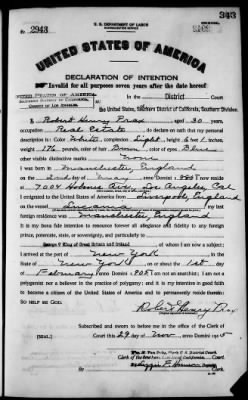 343
U. S. DEPARTMENT OF LABOR
NATURALIZATION SERVICE
No. 2943
UNITED STATES OF AMERICA
DECLARATION OF INTENTION
Invalid for all purposes seven years after the date hereof
UNITED STATES OF AMERICA
SOUTHERN DISTRICT OF CALIFORNIA,
COUNTY OF LOS ANGELES.
ss: In the District Court
of the United States, Southern District of California, Southern Division.
I, Robert Henry Prax, aged 30 years,
occupation Real Estate, do declare on oath that my personal
description is: Color White, complexion Light, height 6 feet 1 inches,
weight 176 pounds, color of hair Brown, color of eyes Blue
other visible distinctive marks None
I was born in Manchester, England
on the day of May, anno Domini 1; I now reside
at 7004 Holmes Ave, Los Angeles, Cal
I emigrated to the United States of America from Liverpool, England
on the vessel; my last
foreign residence was Manchester, England
It is my bona fide intention to renounce forever all allegiance and fidelity to any foreign
prince, potentate, state, or sovereignty, and particularly to
George V King of Great Britain and Ireland, of whom I am now a subject;
I arrived at the port of New York, in the
State of New York, on or about the 1st day
of February, anno Domini 1908; I am not an anarchist; I am not a
polygamist nor a believer in the practice of polygamy; and it is my intention in good faith
to become a citizen of the United States of America and to permanently reside therein:
SO HELP ME GOD.
Robert Henry Prax
Subscribed and sworn to before me in the office of the Clerk of
[SEAL.] said Court this 29 day of Nov, anno Domini 1915
Wm. M. Van Dyke, Clerk U. S. District Court,
Clerk of the Southern District of California
By Deputy Clerk.